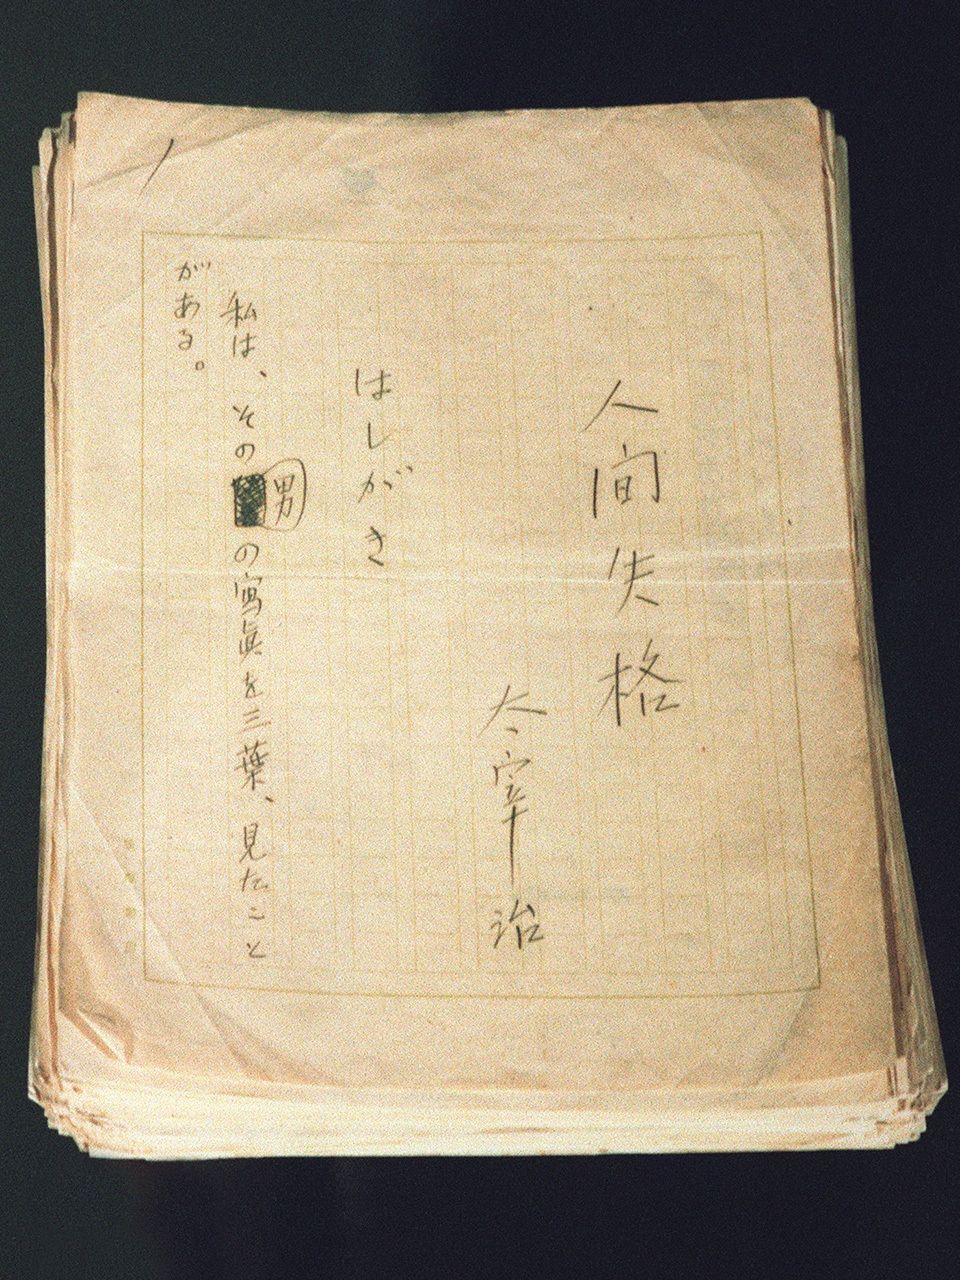 人間失格
太宰治
はしがき
私は、その男の寫眞を三葉、見たこと
がある。